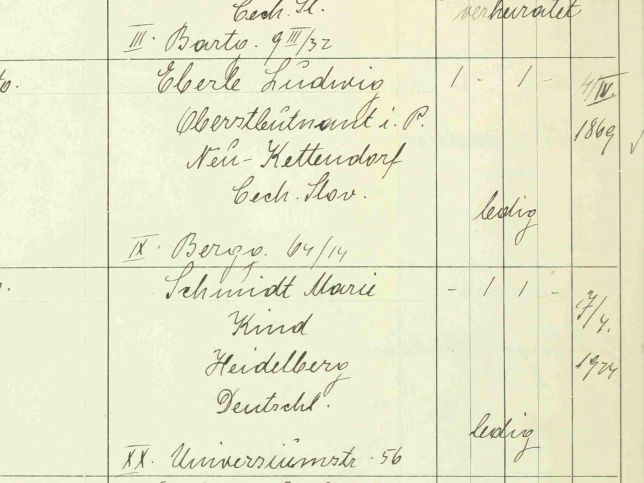 Čech. Sl. verheiratet
III. Bartg. 9 III/32
Eberle Ludwig 1 - 1 - 4/IV.
Oberstleutnant i. P. 1869
Neu-Kettendorf
Čech. Slov.
ledig
IX. Bergg. 64/14
Schmidt Marie - 1 1 - 7/4.
Kind
Heidelberg
Deutschl.
ledig
XX. Universiumstr. 56